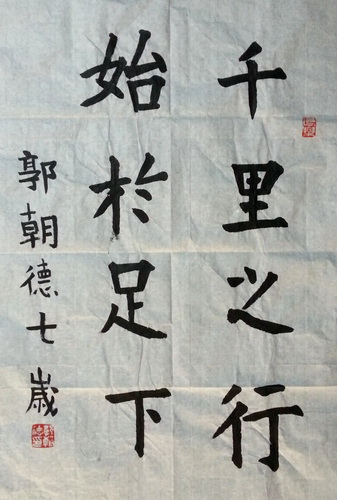 千里之行
始於足下
郭朝德七歲